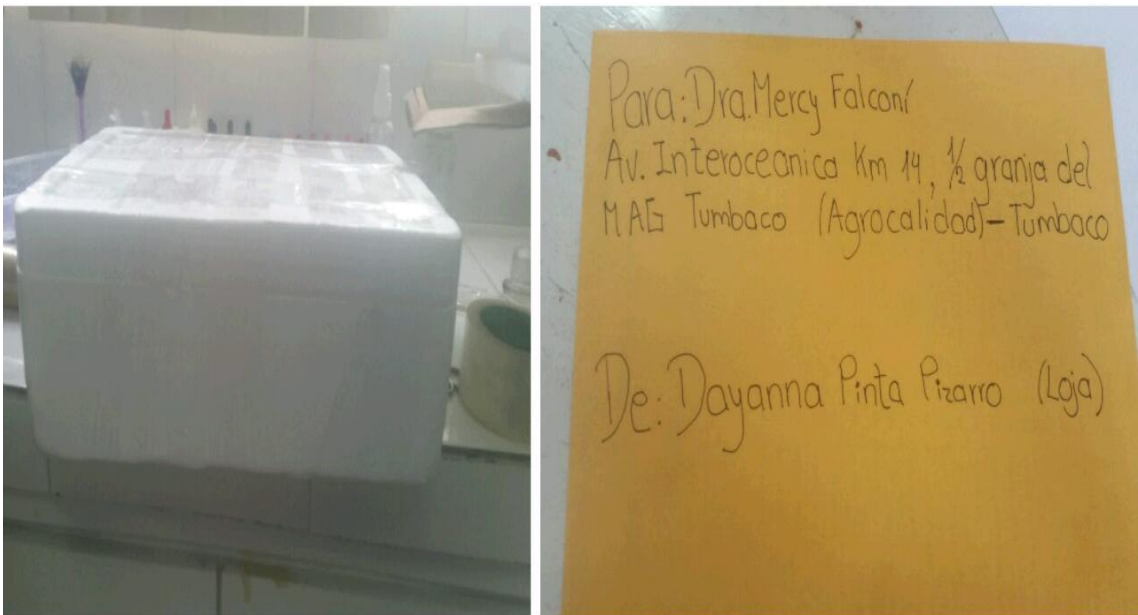 Para: Dra. Mercy Falconí
Av. Interoceanica Km 14, ½ granja del
MAG Tumbaco (Agrocalidad) – Tumbaco
De: Dayanna Pinta Pizarro (Loja)